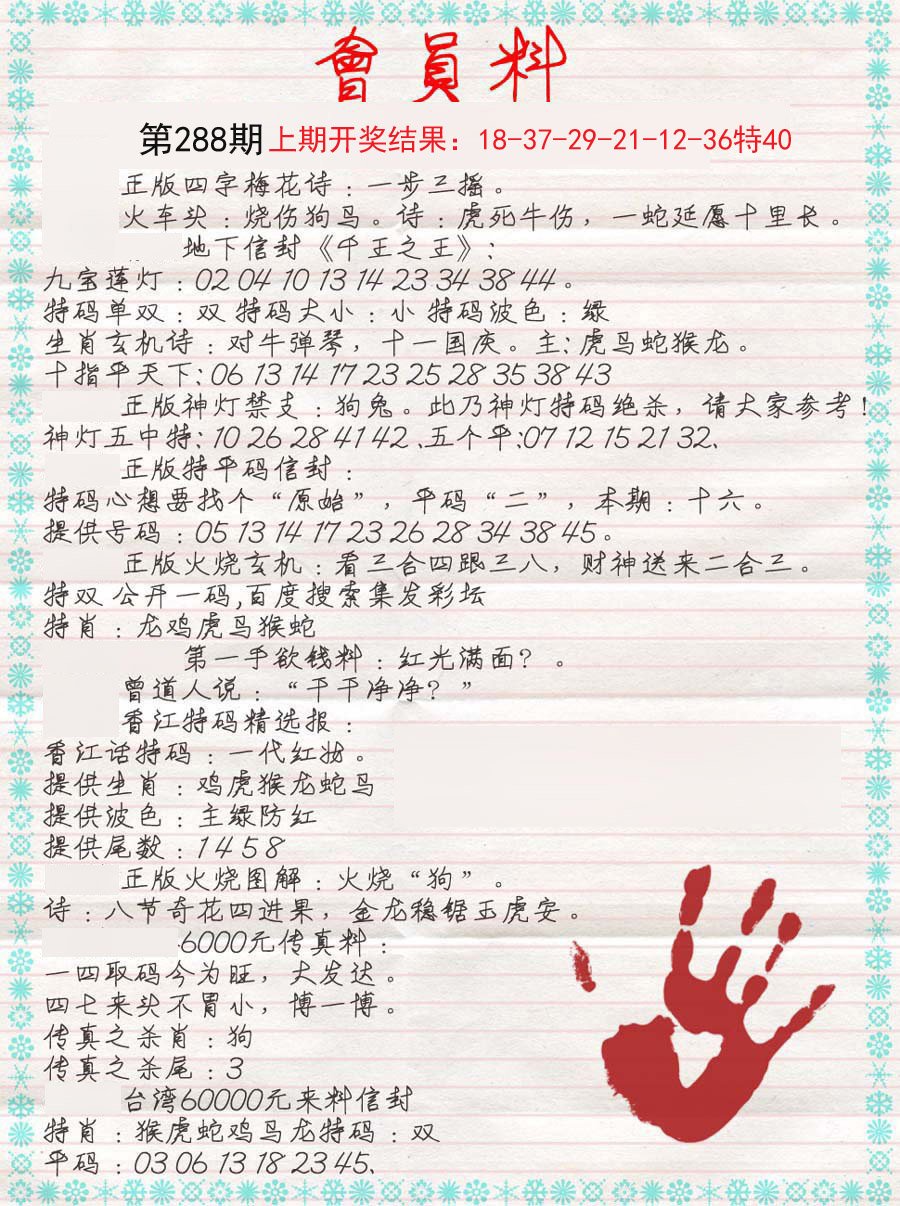 會員料
第288期上期开奖结果：18-37-29-21-12-36特40
正版四字梅花诗：一步三摇。
火车头：烧伤狗鸟。诗：虎死牛伤，一蛇延愿十里长。
地下信封《千王之王》：
九宝莲灯：02 04 10 13 14 23 34 38 44。
特码单双：双 特码大小：小 特码波色：绿
生肖玄机诗：对牛弹琴，十一国庆。主：虎鸟蛇猴龙。
十指平天下：06 13 14 17 23 25 28 35 38 43
正版神灯禁支：狗兔。此乃神灯特码绝杀，请大家参考！
神灯五中特：10 26 28 41 42、五个平：07 12 15 21 32、
正版特平码信封：
特码心想要找个“原始”，平码“二”，本期：十六。
提供号码：05 13 14 17 23 26 28 34 38 45。
正版火烧玄机：看三合四跟三八，财神送来二合三。
特双 公开一码,百度搜索集发彩坛
特肖：龙鸡虎鸟猴蛇
第一手欲钱料：红光满面？。
曾道人说：“干干净净？”
香江特码精选报：
香江话特码：一代红妆。
提供生肖：鸡虎猴龙蛇鸟
提供波色：主绿防红
提供尾数：1 4 5 8
正版火烧图解：火烧“狗”。
诗：八节奇花四进果，金龙稳锯玉虎安。
6000元传真料：
一四取码今为旺，大发达。
四七来头不胃小，博一博。
传真之杀肖：狗
传真之杀尾：3
台湾60000元来料信封
特肖：猴虎蛇鸡鸟龙特码：双
平码：03 06 13 18 23 45、